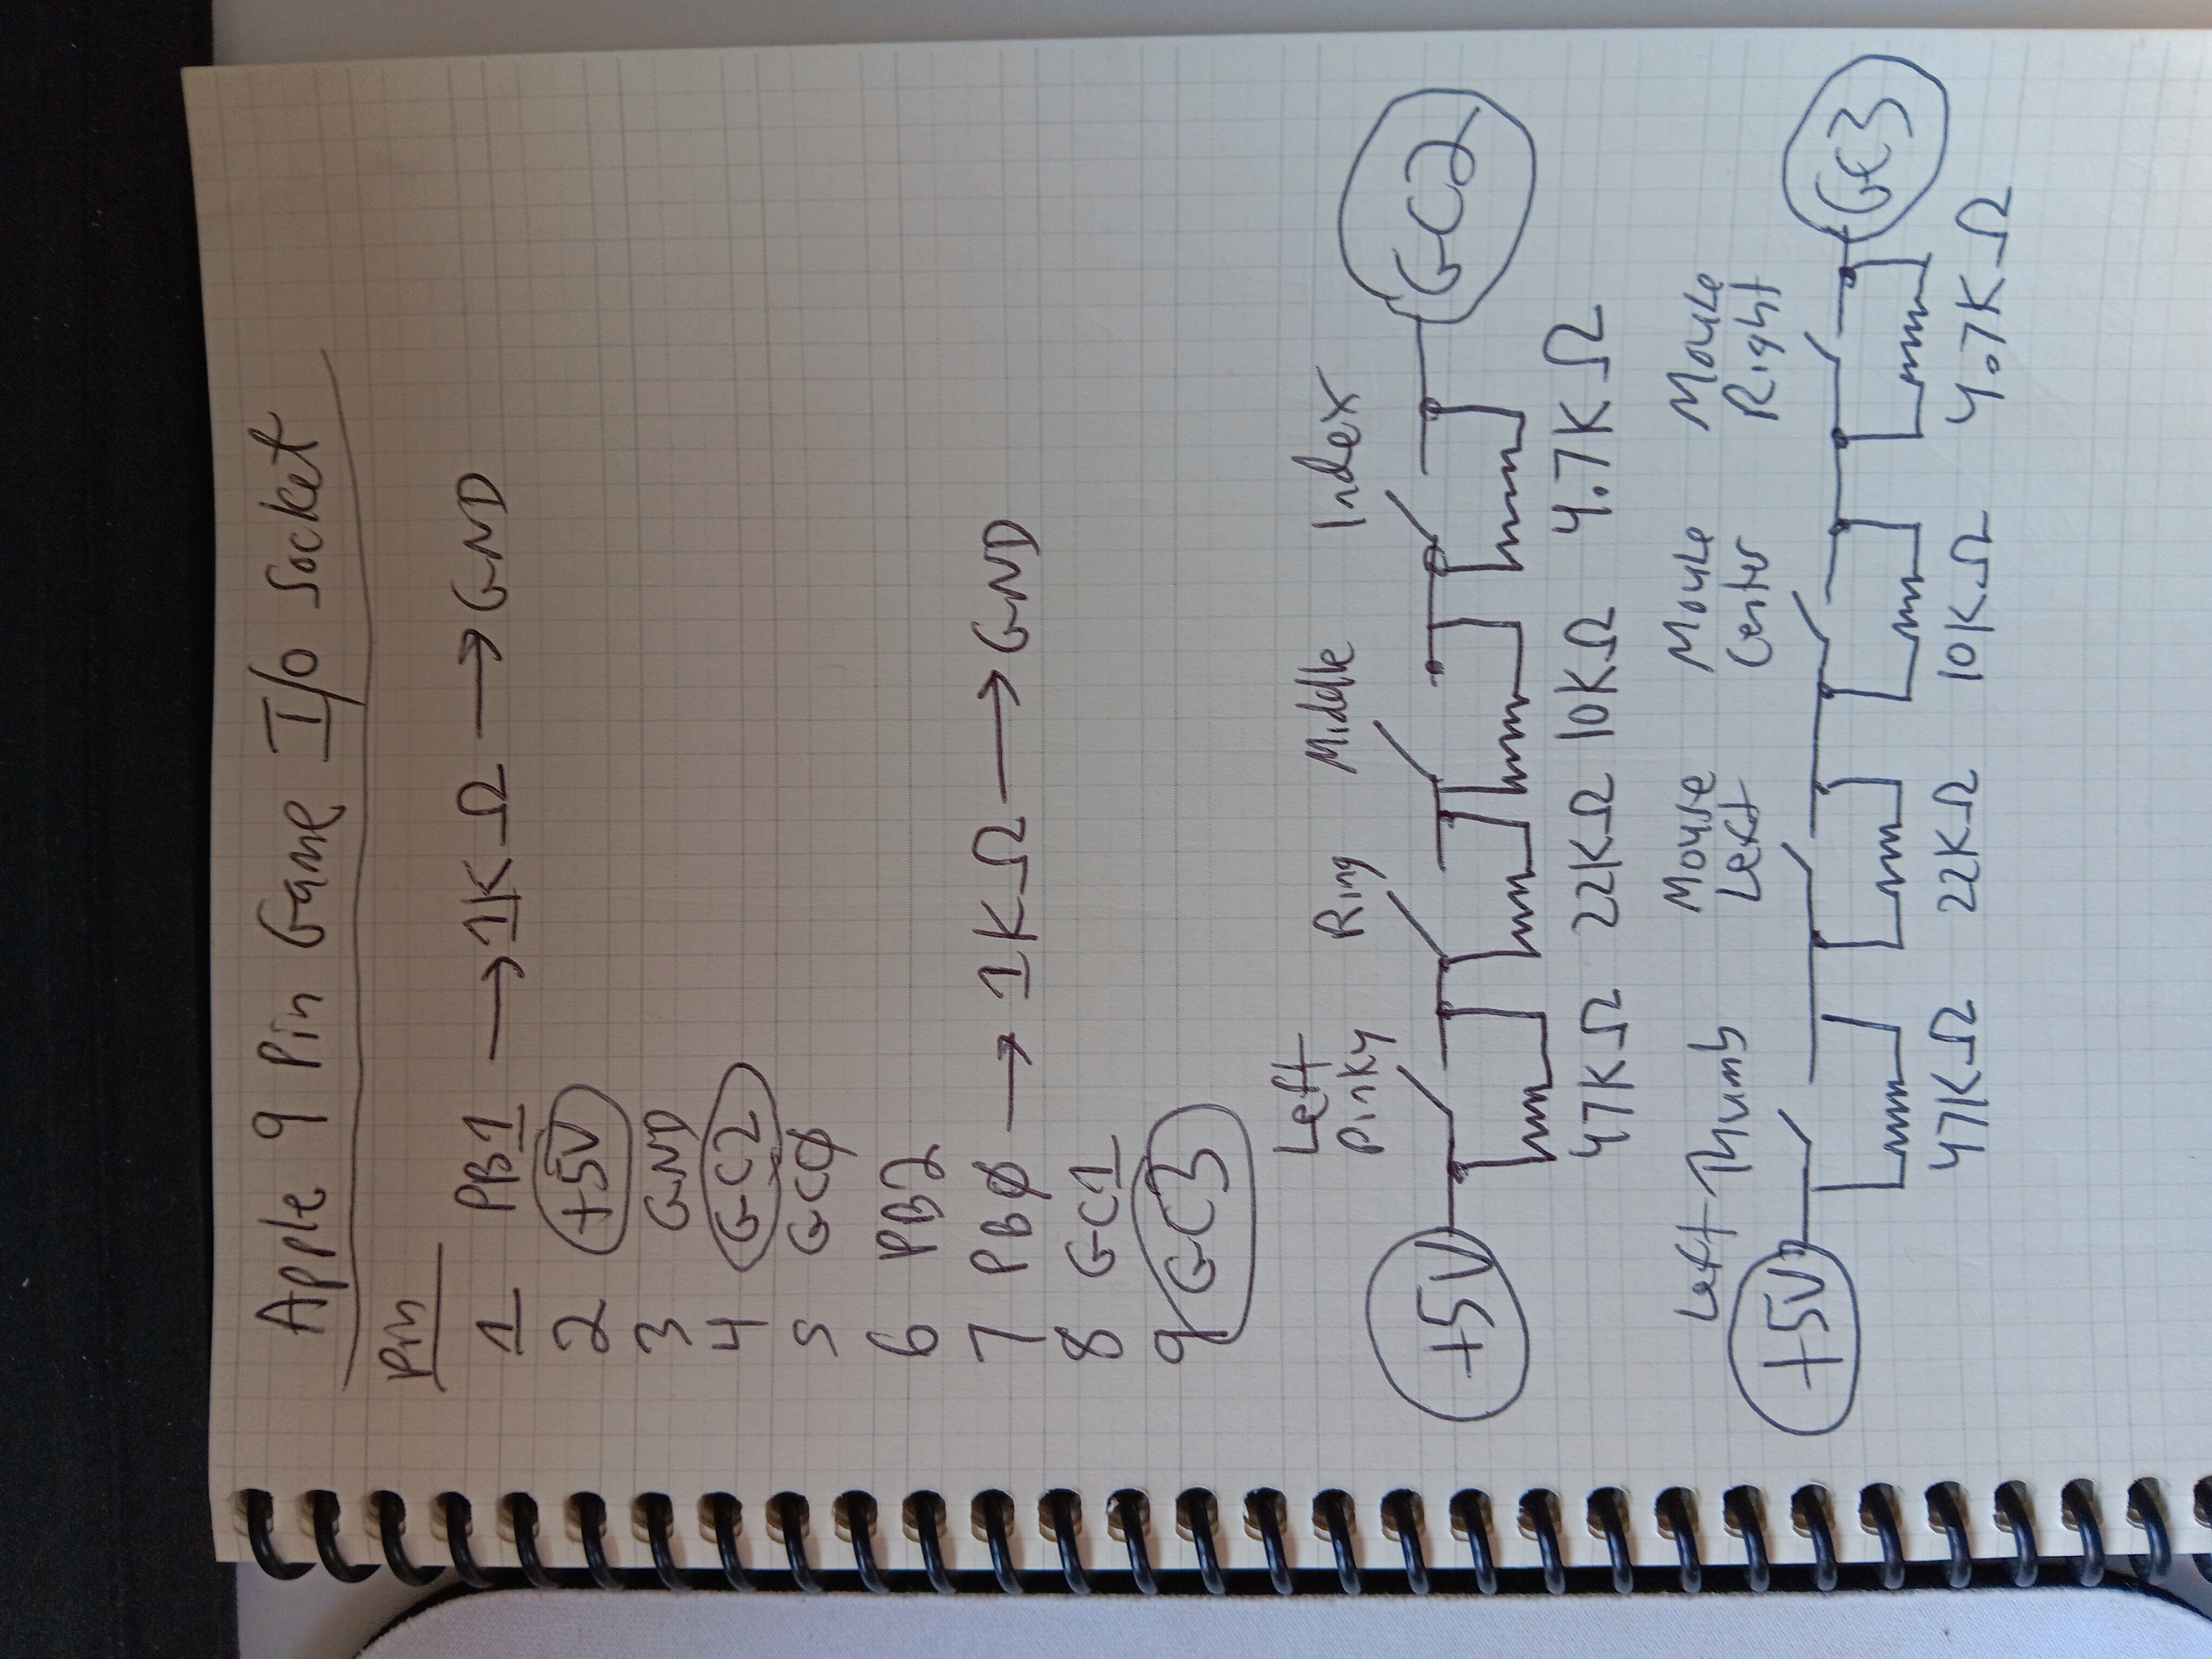 Apple 9 Pin Game I/O Socket
Pin
1 PB1 → 1K Ω → GND
2 +5V
3 GND
4 GC2
5 GC∅
6 PB2
7 PB∅ → 1K Ω → GND
8 GC1
9 GC3
Left
Pinky Ring Middle Index
+5V GC2
47KΩ 22KΩ 10KΩ 4.7KΩ
Left Thumb Mouse Left Mouse Center Mouse Right
+5V GC3
47KΩ 22KΩ 10KΩ 4.7KΩ